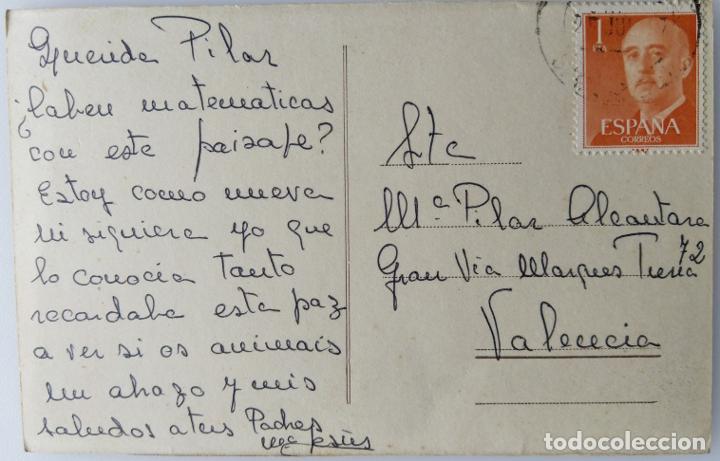 Querida Pilar
¿Saben matematicas
con este paisaje?
Estoy como nueva
ni siquiera yo que
lo conocia tanto
recordaba esta paz
a ver si os animais
un abazo y mis
saludos a tus Padres
Mª Jesús
1
ESPAÑA
CORREOS
Sta
Mª Pilar Alcantara
Gran Via Marques Turia 72
Valencia
todocoleccion
todocoleccion.net